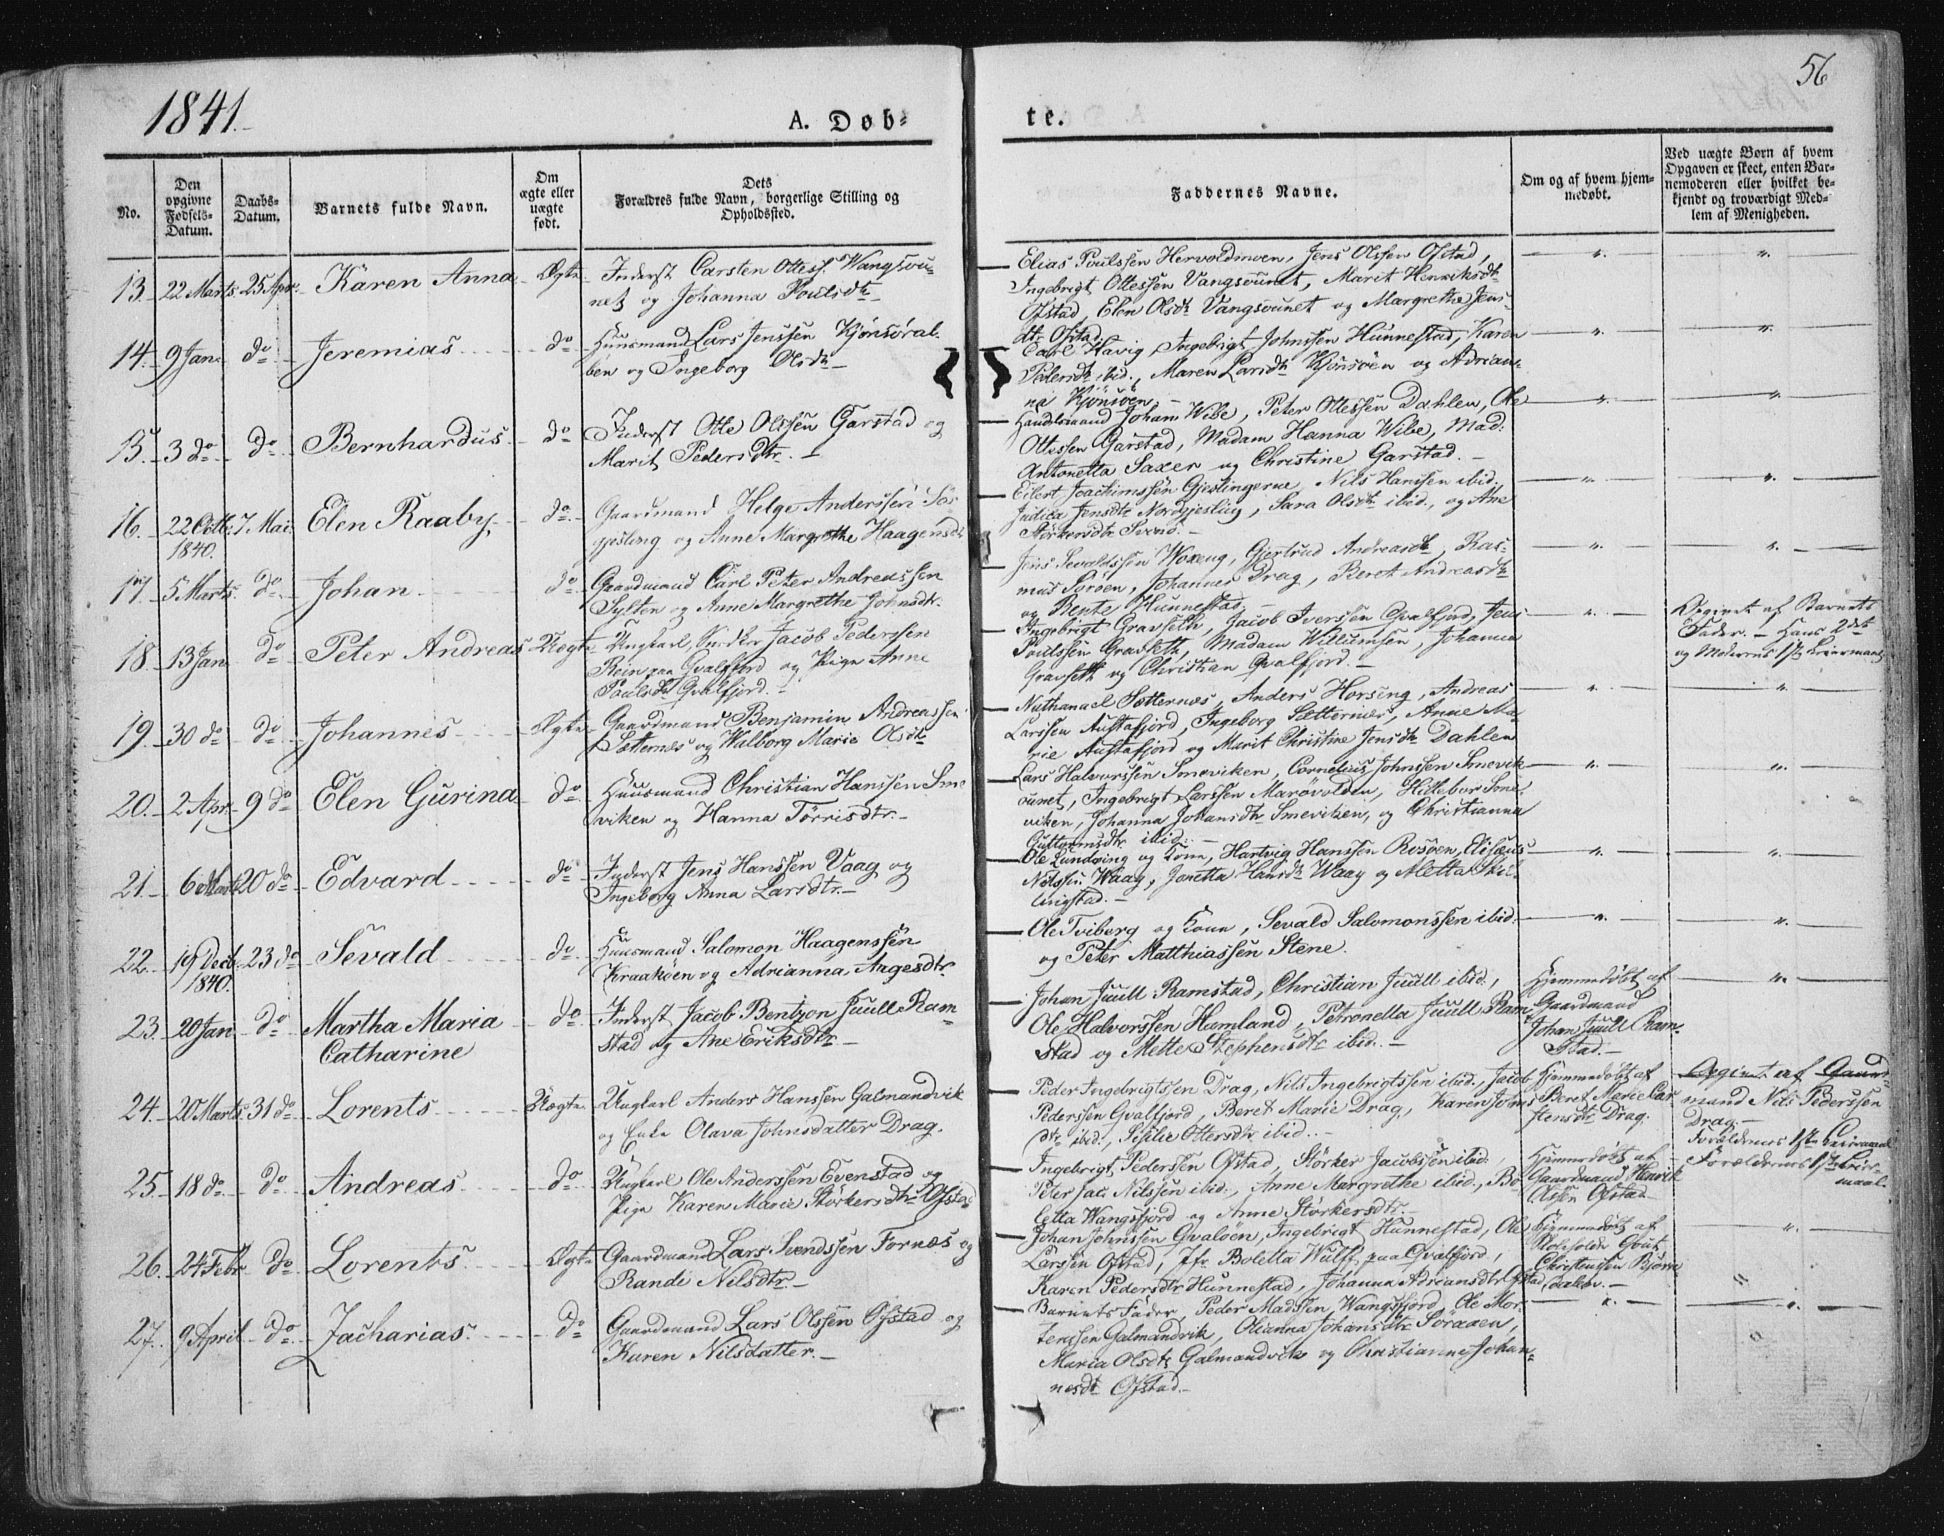 1841.
A. Døb-
te.
56
No.
Den opgivne Fødsels-Datum.
Daabs-Datum.
Barnets fulde Navn.
Om ægte eller uægte født.
Dets Forældres fulde Navn, borgerlige Stilling og Opholdssted.
Faddernes Navne.
Om og af hvem hjem-medøbt.
Ved uægte Børn af hvem Opgaven er skeet, enten Bar-nemoderen eller hvilket be-kjendt og troværdigt Med-lem af Menigheden.
13. 22 Marts 25 Apr. Karen Anna Ægte Inderst Carsten Ottess. Wangsou-
net og Johanna Poulsdtr
Elias Poulssen Hervoldmoen, Jens Olssen Ofstad,
Ingebrigt Ottessen Vangsounet, Marit Henriksdtr
Ofstad, Elen Olsdtr Vangsounet og Margrethe Jens-
dtr Ofstad.
14. 9 Jan. do Jeremias do Huusmand Lars Jenssen Kjønsøral-
ben og Ingeborg Olsdtr
Carl Havig, Ingebrigt Johnssen Hunnestad, Karen
Pedersdtr ibid., Maren Larsdtr Kjønsøen og Adrian-
na Kjønsøen.
15. 3 do do Bernhardus do Inderst Otte Olssen Garstad og
Marit Pedersdtr.
Handelsmand Johan Wibe, Peter Ottessen Dahlen, Ole
Ottessen Garstad, Madam Hanna Wibe, Mad:
Antonetta Saxer og Christine Garstad.
16. 22 Octbr 1840. 7. Mai Elen Raaby do Gaardmand Helge Anderssen Sør-
gjesling og Anne Margrethe Haagensdtr
Eilert Joachimssen Gjeslingerne, Nils Hanssen ibid.,
Judita Jensdtr Nordgjesling, Sara Olsdtr ibid., og Ane
Størkersdtr
17. 5 Marts do Johan do Gaardmand Carl Peter Andreassen
Sylten og Anne Margrethe Johnsdtr.
Jens Sevaldssen Woxeng, Gjertrud Andreasdtr, Ras-
mus Sørøen, Johannes Drag, Beret Andreasdtr
og Bente Hunnestad.
18. 13 Jan do Peter Andreas Uægte Ungkarl, Jacob Pederssen
Rein paa Qvalfjord og Pige Anne
Poulsdtr Qvalfjord.
Ingebrigt Gravseth, Jacob Iverssen Qvalfjord, Jens
Poulssen Gravseth, Madam Willumsen, Johanna
Gravseth og Christian Qvalfjord.
Opgivet af Barnets
Fader. Hans 2det
og Moderens 1ste Leiermaal
19. 30 do do Johannes Ægte Gaardmand Benjamin Andreassen
Sætternes og Walborg Marie Olsdtr
Nathanael Sætternes, Anders Horsing, Andreas
Larssen Austafjord, Ingeborg Sætternes, Anne Ma-
rie Austafjord og Marit Christine Jensdtr Dahlen
20. 2 Apr. 9 do Elen Gurina do Huusmand Christian Hanssen Sme-
viken og Hanna Tørrisdtr.
Lars Halvorssen Smeviken, Cornelius Johnssen Smevik-
ounet, Ingebrigt Larssen Marøvolden, Hilleborg Sme-
viken, Johanna Johansdtr Smeviken, og Christianna
Guttormsdtr ibid.
21. 6 Marts 20 do Edvard do Inderst Jens Hanssen Vaag og
Ingeborg Anna Larsdtr.
Ole Lundring og Kone, Hartvig Hanssen Rosøen, Elisæus
Nilssen Waag, Jonetta Hansdtr Waag og Aletta Skil-
lingstad.
22. 19 Decb 1840. 23 do Sevald do Huusmand Salomon Haagenssen
Kraakøen og Adrianna Aagesdtr
Ole Tviberg og Kone, Sevald Salomonssen ibid.
og Peter Matthiassen Stene.
23. 20 Jan do Martha Maria
Catharine do Inderst Jacob Bentzon Juull Ram-
stad og Ane Eriksdtr
Johan Juull Ramstad, Christian Juull ibid.,
Ole Halvorssen Hamland, Petronella Juull Ram-
stad og Mette Stephensdtr ibid.
Hjemmedøbt af
Gaardmand
Johan Juull Ram-
stad.
24. 20 Marts 31 do Lorents Uægte Ungkarl Anders Hanssen Galmandvik
og Enke Olava Johnsdatter Drag.
Peder Ingebrigtssen Drag, Nils Ingebrigtssen ibid., Jacob
Pederssen Qvalfjord, Beret Marie Drag, Karen Johns-
dtr ibid., Sisilie Ottersdtr ibid.
Hjemmedøbt af
Beret Marie Car-
stensdtr Drag.
Opgivet af Gaard-
mand Nils Pederssen
Drag.
Forældrenes 1ste Leiermaal
25. 18 do do Andreas do Ungkarl Ole Anderssen Evenstad og
Pige Karen Marie Størkersdtr Ofstad
Ingebrigt Pederssen Ofstad, Størker Jacobssen ibid.,
Peter Jac: Nilssen ibid., Anne Margrethe ibid., Bo-
letta Wangsfjord og Anne Størkersdtr.
Hjemmedøbt af
Gaardmand Henrik
Olssen Ofstad
Forældrenes 1ste Leier-
maal.
26. 24 Febr do Lorents Ægte Gaardmand Lars Svendssen Fornæs og
Randi Nilsdtr.
Johan Johnssen Qvaløen, Ingebrigt Hunnestad, Ole
Larssen Ofstad, Jfr. Boletta Wulff paa Qvalfjord,
Karen Pedersdtr Hunnestad, Johanna Adriansdtr Ofstad
Hjemmedøbt af
Christenssen Bjørn-
dalen.
27. 9 April do Zacharias do Gaardmand Lars Olssen Ofstad og
Karen Nilsdatter.
Barnets Fader, Peder Madssen Wangsfjord, Ole Mor-
tenssen Galmandvik, Olianna Johansdtr Sørøen,
Maria Olsdtr Galmandvik og Christianne Johan-
nesdtr Ofstad.